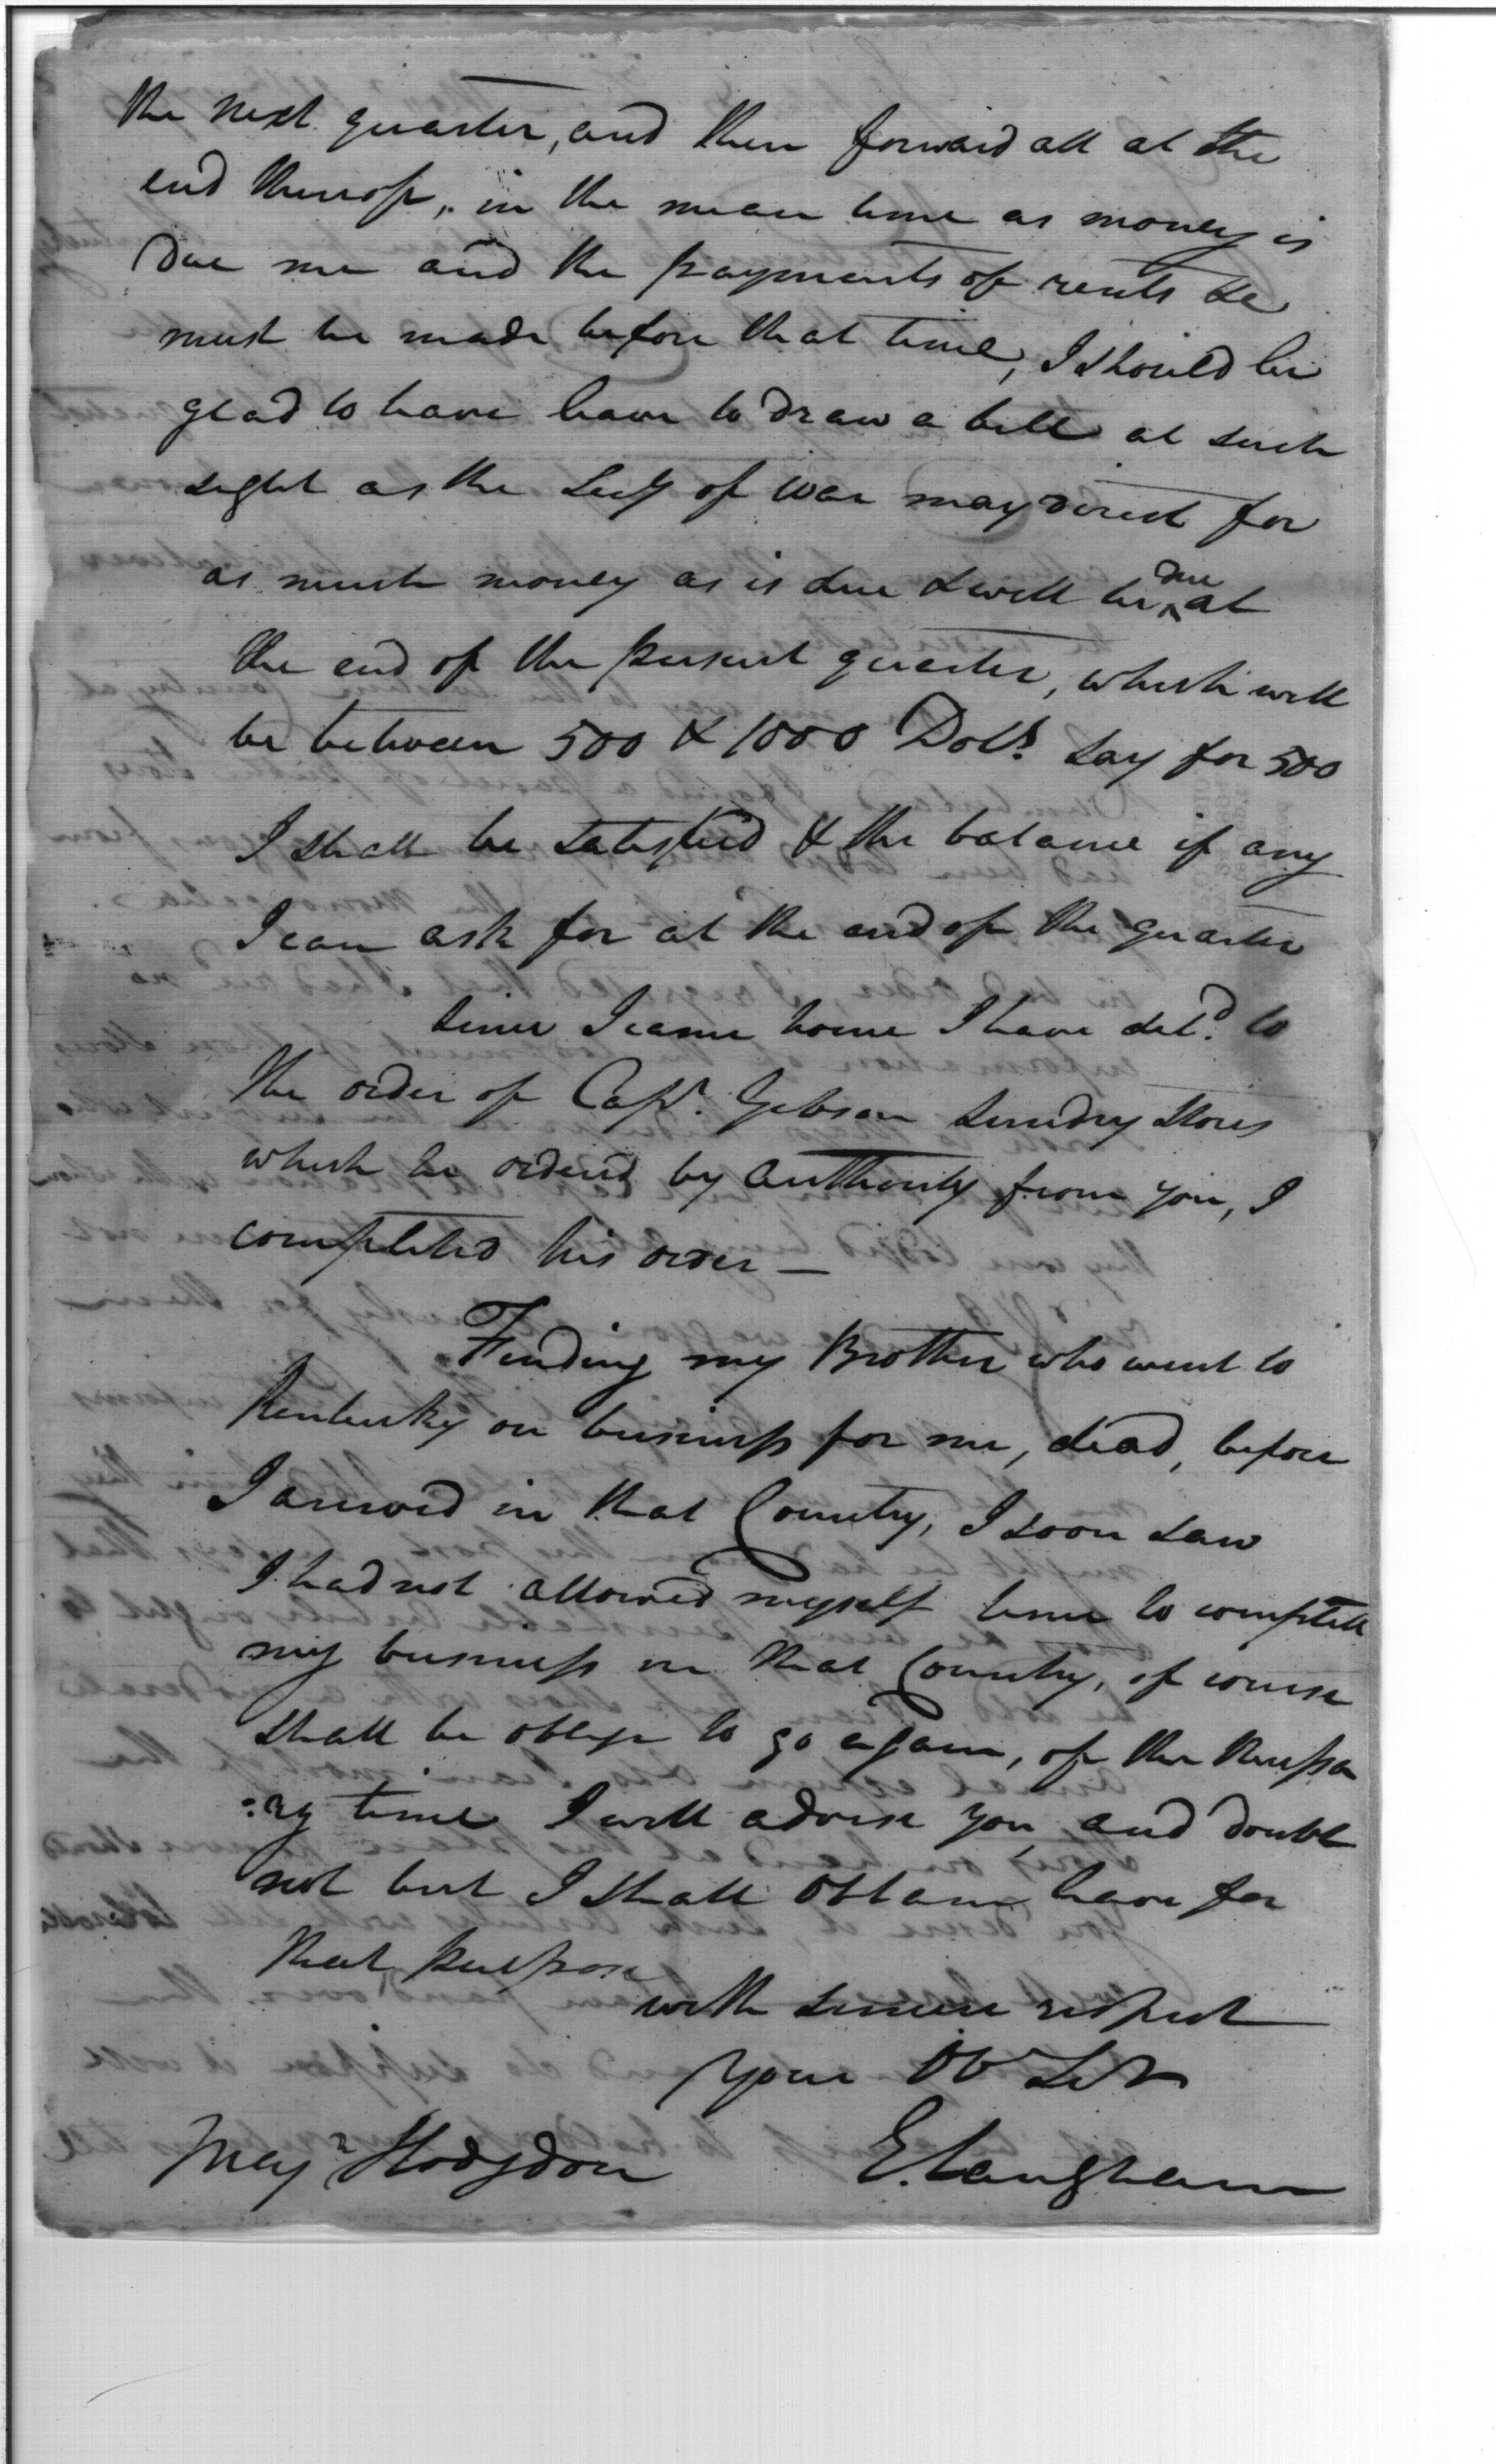 the next quarter, and then forward all at the
end thereof, in the mean time as money is
due me and the payments of rents &c
must be made before that time, I should be
glad to have leave to draw a bill at such
sight as the Secy of War may direct for
as much money as is due & will be due at
the end of the present quarter, which will
be between 500 & 1000 Dolls. Say for 500
I shall be satisfied & the balance if any
I can ask for at the end of the quarter
Since I came home I have deld. to
the order of Capt. Gibson Sundry Stores
which he ordered by authority from you, I
completed his order —
Finding my Brother who went to
Kentucky on business for me, dead, before
I arrived in that Country, I soon saw
I had not allowed myself time to complete
my business in that Country, of course
shall be oblige to go again, of the necessa
:ry time I will advise you and doubt
not but I shall obtain leave for
that purpose
with sincere respect
your Ob Sert
Majr Hodgdon E. Langham